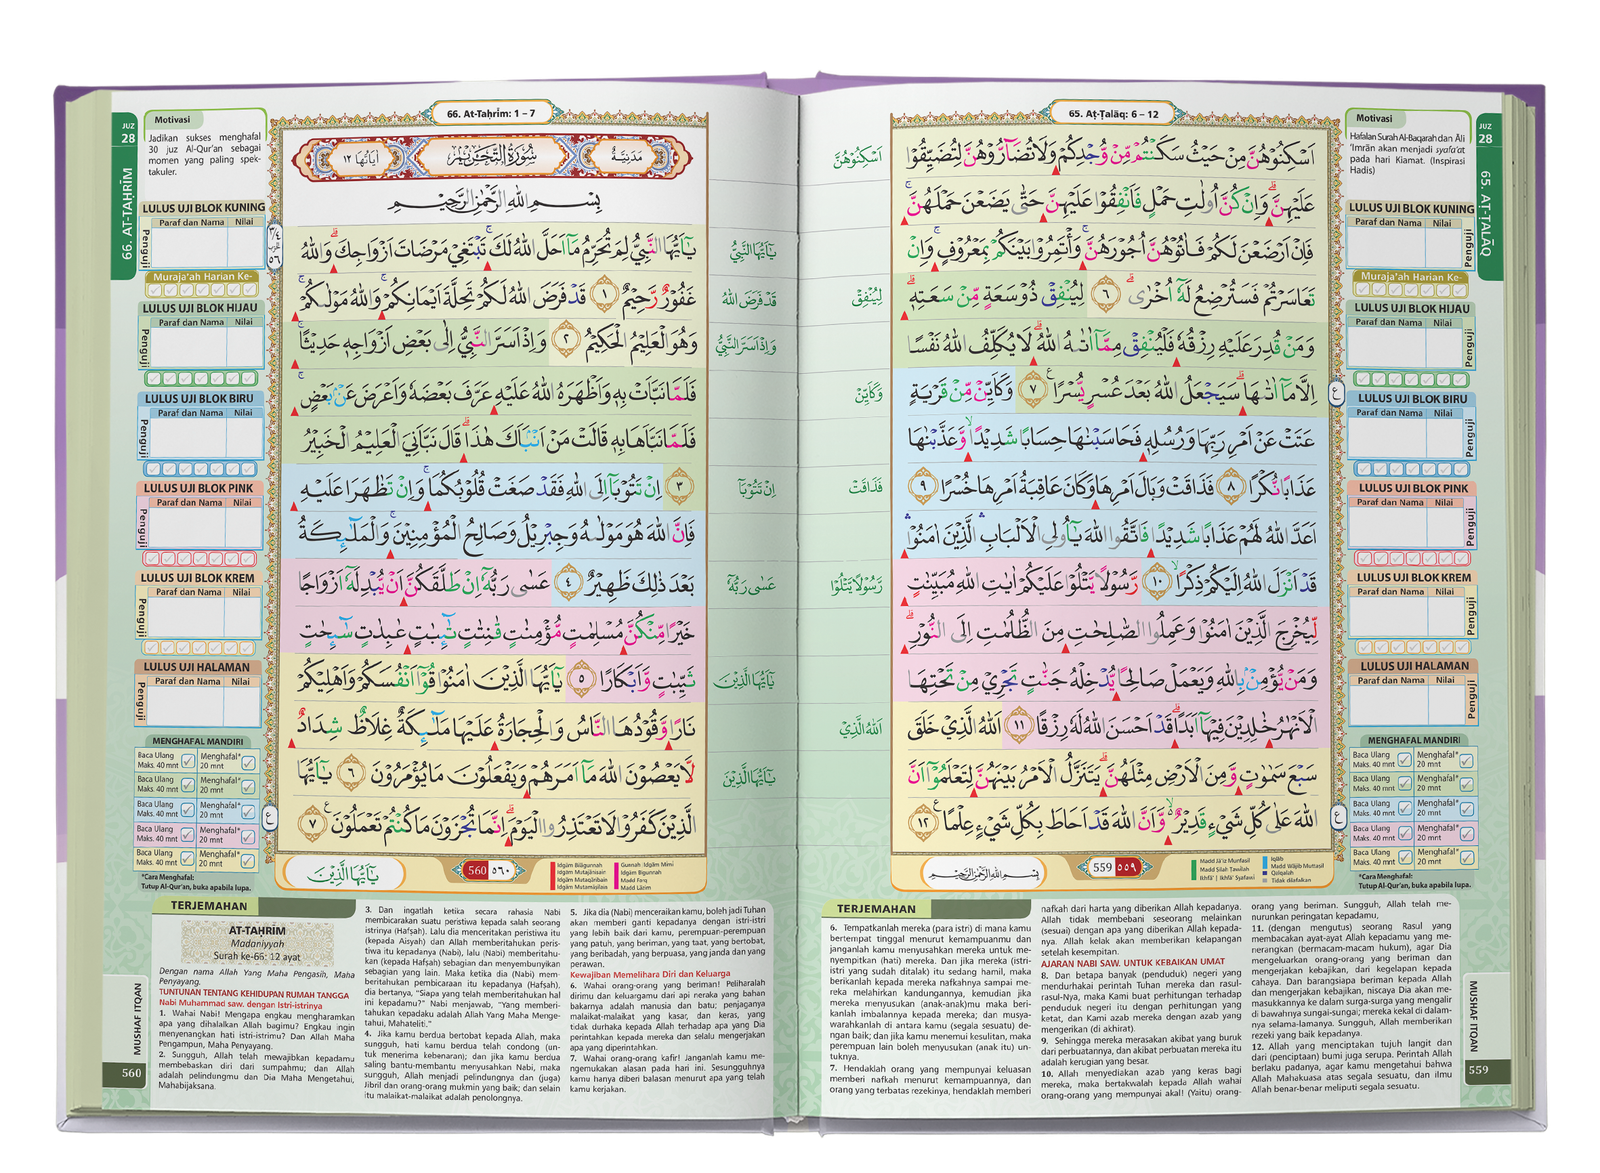 65. Aṭ-Ṭalāq: 6 – 12
Motivasi
Hafalan Surah Al-Baqarah dan Āli
'Imrān akan menjadi syafa'at
pada hari Kiamat. (Inspirasi
Hadis)
JUZ
28
65. AṬ-ṬALĀQ
LULUS UJI BLOK KUNING
Paraf dan Nama Nilai
Penguji
Muraja'ah Harian Ke-
LULUS UJI BLOK HIJAU
Paraf dan Nama Nilai
Penguji
LULUS UJI BLOK BIRU
Paraf dan Nama Nilai
Penguji
LULUS UJI BLOK PINK
Paraf dan Nama Nilai
Penguji
LULUS UJI BLOK KREM
Paraf dan Nama Nilai
Penguji
LULUS UJI HALAMAN
Paraf dan Nama Nilai
Penguji
MENGHAFAL MANDIRI
Baca Ulang Menghafal*
Maks. 40 mnt 20 mnt
Baca Ulang Menghafal*
Maks. 40 mnt 20 mnt
Baca Ulang Menghafal*
Maks. 40 mnt 20 mnt
Baca Ulang Menghafal*
Maks. 40 mnt 20 mnt
Baca Ulang Menghafal*
Maks. 40 mnt 20 mnt
*Cara Menghafal:
Tutup Al-Qur'an, buka apabila lupa.
اَسْكِنُوْهُنَّ مِنْ حَيْثُ سَكَنْتُمْ مِّنْ وُّجْدِكُمْ وَلَا تُضَاۤرُّوْهُنَّ لِتُضَيِّقُوْا
عَلَيْهِنَّۗ وَاِنْ كُنَّ اُولَاتِ حَمْلٍ فَاَنْفِقُوْا عَلَيْهِنَّ حَتّٰى يَضَعْنَ حَمْلَهُنَّۚ
فَاِنْ اَرْضَعْنَ لَكُمْ فَاٰتُوْهُنَّ اُجُوْرَهُنَّۚ وَأْتَمِرُوْا بَيْنَكُمْ بِمَعْرُوْفٍۚ وَاِنْ
تَعَاسَرْتُمْ فَسَتُرْضِعُ لَهٗٓ اُخْرٰىۗ ٦ لِيُنْفِقْ ذُوْ سَعَةٍ مِّنْ سَعَتِهٖۗ
وَمَنْ قُدِرَ عَلَيْهِ رِزْقُهٗ فَلْيُنْفِقْ مِمَّآ اٰتٰىهُ اللّٰهُ ۗ لَا يُكَلِّفُ اللّٰهُ نَفْسًا
اِلَّا مَآ اٰتٰىهَاۗ سَيَجْعَلُ اللّٰهُ بَعْدَ عُسْرٍ يُّسْرًا ࣖ ٧ وَكَاَيِّنْ مِّنْ قَرْيَةٍ
عَتَتْ عَنْ اَمْرِ رَبِّهَا وَرُسُلِهٖ فَحَاسَبْنٰهَا حِسَابًا شَدِيْدًاۙ وَّعَذَّبْنٰهَا
عَذَابًا نُّكْرًا ٨ فَذَاقَتْ وَبَالَ اَمْرِهَا وَكَانَ عَاقِبَةُ اَمْرِهَا خُسْرًا ٩
اَعَدَّ اللّٰهُ لَهُمْ عَذَابًا شَدِيْدًا فَاتَّقُوا اللّٰهَ يٰٓاُولِى الْاَلْبَابِۛ الَّذِيْنَ اٰمَنُوْاۛ
قَدْ اَنْزَلَ اللّٰهُ اِلَيْكُمْ ذِكْرًاۙ ١٠ رَّسُوْلًا يَّتْلُوْا عَلَيْكُمْ اٰيٰتِ اللّٰهِ مُبَيِّنٰتٍ
لِّيُخْرِجَ الَّذِيْنَ اٰمَنُوْا وَعَمِلُوا الصّٰلِحٰتِ مِنَ الظُّلُمٰتِ اِلَى النُّوْرِۗ
وَمَنْ يُّؤْمِنْ بِاللّٰهِ وَيَعْمَلْ صَالِحًا يُّدْخِلْهُ جَنّٰتٍ تَجْرِيْ مِنْ تَحْتِهَا
الْاَنْهٰرُ خٰلِدِيْنَ فِيْهَآ اَبَدًاۗ قَدْ اَحْسَنَ اللّٰهُ لَهٗ رِزْقًا ١١ اَللّٰهُ الَّذِيْ خَلَقَ
سَبْعَ سَمٰوٰتٍ وَّمِنَ الْاَرْضِ مِثْلَهُنَّۗ يَتَنَزَّلُ الْاَمْرُ بَيْنَهُنَّ لِتَعْلَمُوْٓا اَنَّ
اللّٰهَ عَلٰى كُلِّ شَيْءٍ قَدِيْرٌ ەۙ وَّاَنَّ اللّٰهَ قَدْ اَحَاطَ بِكُلِّ شَيْءٍ عِلْمًا ࣖ ١٢
اَسْكِنُوْهُنَّ
لِيُنْفِقْ
وَكَاَيِّنْ
فَذَاقَتْ
رَّسُوْلًا يَّتْلُوْا
اَللّٰهُ الَّذِيْ
بِسْمِ اللّٰهِ الرَّحْمٰنِ الرَّحِيْمِ
559 ٥٥٩
Madd Jā'iz Munfasil
Madd Silah Tawilah
Ikhfā' | Ikhfā' Syafawi
Iqlāb
Madd Wājib Muttasil
Qalqalah
Tidak dilafalkan
TERJEMAHAN
6. Tempatkanlah mereka (para istri) di mana kamu
bertempat tinggal menurut kemampuanmu dan
janganlah kamu menyusahkan mereka untuk me-
nyempitkan (hati) mereka. Dan jika mereka (istri-
istri yang sudah ditalak) itu sedang hamil, maka
berikanlah kepada mereka nafkahnya sampai me-
reka melahirkan kandungannya, kemudian jika
mereka menyusukan (anak-anak)mu maka beri-
kanlah imbalannya kepada mereka; dan musya-
warahkanlah di antara kamu (segala sesuatu) de-
ngan baik; dan jika kamu menemui kesulitan, maka
perempuan lain boleh menyusukan (anak itu) un-
tuknya.
7. Hendaklah orang yang mempunyai keluasan
memberi nafkah menurut kemampuannya, dan
orang yang terbatas rezekinya, hendaklah memberi
nafkah dari harta yang diberikan Allah kepadanya.
Allah tidak membebani seseorang melainkan
(sesuai) dengan apa yang diberikan Allah kepada-
nya. Allah kelak akan memberikan kelapangan
setelah kesempitan.
AJARAN NABI SAW. UNTUK KEBAIKAN UMAT
8. Dan betapa banyak (penduduk) negeri yang
mendurhakai perintah Tuhan mereka dan rasul-
rasul-Nya, maka Kami buat perhitungan terhadap
penduduk negeri itu dengan perhitungan yang
ketat, dan Kami azab mereka dengan azab yang
mengerikan (di akhirat).
9. Sehingga mereka merasakan akibat yang buruk
dari perbuatannya, dan akibat perbuatan mereka itu
adalah kerugian yang besar.
10. Allah menyediakan azab yang keras bagi
mereka, maka bertakwalah kepada Allah wahai
orang-orang yang mempunyai akal! (Yaitu) orang-
orang yang beriman. Sungguh, Allah telah me-
nurunkan peringatan kepadamu,
11. (dengan mengutus) seorang Rasul yang
membacakan ayat-ayat Allah kepadamu yang me-
nerangkan (bermacam-macam hukum), agar Dia
mengeluarkan orang-orang yang beriman dan
mengerjakan kebajikan, dari kegelapan kepada
cahaya. Dan barangsiapa beriman kepada Allah
dan mengerjakan kebajikan, niscaya Dia akan me-
masukkannya ke dalam surga-surga yang mengalir
di bawahnya sungai-sungai; mereka kekal di dalam-
nya selama-lamanya. Sungguh, Allah memberikan
rezeki yang baik kepadanya.
12. Allah yang menciptakan tujuh langit dan
dari (penciptaan) bumi juga serupa. Perintah Allah
berlaku padanya, agar kamu mengetahui bahwa
Allah Mahakuasa atas segala sesuatu, dan ilmu
Allah benar-benar meliputi segala sesuatu.
MUSHAF ITQAN
559
66. At-Taḥrīm: 1 – 7
Motivasi
Jadikan sukses menghafal
30 juz Al-Qur'an sebagai
momen yang paling spek-
takuler.
JUZ
28
66. AT-TAḤRĪM
LULUS UJI BLOK KUNING
Paraf dan Nama Nilai
Penguji
Muraja'ah Harian Ke-
LULUS UJI BLOK HIJAU
Paraf dan Nama Nilai
Penguji
LULUS UJI BLOK BIRU
Paraf dan Nama Nilai
Penguji
LULUS UJI BLOK PINK
Paraf dan Nama Nilai
Penguji
LULUS UJI BLOK KREM
Paraf dan Nama Nilai
Penguji
LULUS UJI HALAMAN
Paraf dan Nama Nilai
Penguji
MENGHAFAL MANDIRI
Baca Ulang Menghafal*
Maks. 40 mnt 20 mnt
Baca Ulang Menghafal*
Maks. 40 mnt 20 mnt
Baca Ulang Menghafal*
Maks. 40 mnt 20 mnt
Baca Ulang Menghafal*
Maks. 40 mnt 20 mnt
Baca Ulang Menghafal*
Maks. 40 mnt 20 mnt
*Cara Menghafal:
Tutup Al-Qur'an, buka apabila lupa.
مَدَنِيَّةٌ سُوْرَةُ التَّحْرِيْمِ اٰيَاتُهَا ١٢
بِسْمِ اللّٰهِ الرَّحْمٰنِ الرَّحِيْمِ
يٰٓاَيُّهَا النَّبِيُّ لِمَ تُحَرِّمُ مَآ اَحَلَّ اللّٰهُ لَكَۚ تَبْتَغِيْ مَرْضَاتَ اَزْوَاجِكَۗ وَاللّٰهُ
غَفُوْرٌ رَّحِيْمٌ ١ قَدْ فَرَضَ اللّٰهُ لَكُمْ تَحِلَّةَ اَيْمَانِكُمْۚ وَاللّٰهُ مَوْلٰىكُمْۚ
وَهُوَ الْعَلِيْمُ الْحَكِيْمُ ٢ وَاِذْ اَسَرَّ النَّبِيُّ اِلٰى بَعْضِ اَزْوَاجِهٖ حَدِيْثًاۚ
فَلَمَّا نَبَّاَتْ بِهٖ وَاَظْهَرَهُ اللّٰهُ عَلَيْهِ عَرَّفَ بَعْضَهٗ وَاَعْرَضَ عَنْۢ بَعْضٍۚ
فَلَمَّا نَبَّاَهَا بِهٖ قَالَتْ مَنْ اَنْۢبَاَكَ هٰذَاۗ قَالَ نَبَّاَنِيَ الْعَلِيْمُ الْخَبِيْرُ
٣ اِنْ تَتُوْبَآ اِلَى اللّٰهِ فَقَدْ صَغَتْ قُلُوْبُكُمَاۚ وَاِنْ تَظٰهَرَا عَلَيْهِ
فَاِنَّ اللّٰهَ هُوَ مَوْلٰىهُ وَجِبْرِيْلُ وَصَالِحُ الْمُؤْمِنِيْنَۚ وَالْمَلٰۤىِٕكَةُ
بَعْدَ ذٰلِكَ ظَهِيْرٌ ٤ عَسٰى رَبُّهٗٓ اِنْ طَلَّقَكُنَّ اَنْ يُّبْدِلَهٗٓ اَزْوَاجًا
خَيْرًا مِّنْكُنَّ مُسْلِمٰتٍ مُّؤْمِنٰتٍ قٰنِتٰتٍ تٰۤىِٕبٰتٍ عٰبِدٰتٍ سٰۤىِٕحٰتٍ
ثَيِّبٰتٍ وَّاَبْكَارًا ٥ يٰٓاَيُّهَا الَّذِيْنَ اٰمَنُوْا قُوْٓا اَنْفُسَكُمْ وَاَهْلِيْكُمْ
نَارًا وَّقُوْدُهَا النَّاسُ وَالْحِجَارَةُ عَلَيْهَا مَلٰۤىِٕكَةٌ غِلَاظٌ شِدَادٌ
لَّا يَعْصُوْنَ اللّٰهَ مَآ اَمَرَهُمْ وَيَفْعَلُوْنَ مَا يُؤْمَرُوْنَ ٦ يٰٓاَيُّهَا
الَّذِيْنَ كَفَرُوْا لَا تَعْتَذِرُوا الْيَوْمَۗ اِنَّمَا تُجْزَوْنَ مَا كُنْتُمْ تَعْمَلُوْنَ ࣖ ٧
يٰٓاَيُّهَا النَّبِيُّ
قَدْ فَرَضَ اللّٰهُ
وَاِذْ اَسَرَّ النَّبِيُّ
اِنْ تَتُوْبَآ
عَسٰى رَبُّهٗٓ
يٰٓاَيُّهَا الَّذِيْنَ
يٰٓاَيُّهَا الَّذِيْنَ
يٰٓاَيُّهَا الَّذِيْنَ
560 ٥٦٠
Idgām Bilāgunnah
Idgām Mutajānisain
Idgām Mutaqāribain
Idgām Mutamāṡilain
Gunnah | Idgām Mimi
Idgām Bigunnah
Madd Farq
Madd Lāzim
TERJEMAHAN
AT-TAḤRĪM
Madaniyyah
Surah ke-66: 12 ayat
Dengan nama Allah Yang Maha Pengasih, Maha
Penyayang.
TUNTUNAN TENTANG KEHIDUPAN RUMAH TANGGA
Nabi Muhammad saw. dengan Istri-istrinya
1. Wahai Nabi! Mengapa engkau mengharamkan
apa yang dihalalkan Allah bagimu? Engkau ingin
menyenangkan hati istri-istrimu? Dan Allah Maha
Pengampun, Maha Penyayang.
2. Sungguh, Allah telah mewajibkan kepadamu
membebaskan diri dari sumpahmu; dan Allah
adalah pelindungmu dan Dia Maha Mengetahui,
Mahabijaksana.
3. Dan ingatlah ketika secara rahasia Nabi
membicarakan suatu peristiwa kepada salah seorang
istrinya (Hafṣah). Lalu dia menceritakan peristiwa itu
(kepada Aisyah) dan Allah memberitahukan peris-
tiwa itu kepadanya (Nabi), lalu (Nabi) memberitahu-
kan (kepada Hafṣah) sebagian dan menyembunyikan
sebagian yang lain. Maka ketika dia (Nabi) mem-
beritahukan pembicaraan itu kepadanya (Hafṣah),
dia bertanya, "Siapa yang telah memberitahukan hal
ini kepadamu?" Nabi menjawab, "Yang memberi-
tahukan kepadaku adalah Allah Yang Maha Menge-
tahui, Mahateliti."
4. Jika kamu berdua bertobat kepada Allah, maka
sungguh, hati kamu berdua telah condong (un-
tuk menerima kebenaran); dan jika kamu berdua
saling bantu-membantu menyusahkan Nabi, maka
sungguh, Allah menjadi pelindungnya dan (juga)
Jibril dan orang-orang mukmin yang baik; dan selain
itu malaikat-malaikat adalah penolongnya.
5. Jika dia (Nabi) menceraikan kamu, boleh jadi Tuhan
akan memberi ganti kepadanya dengan istri-istri
yang lebih baik dari kamu, perempuan-perempuan
yang patuh, yang beriman, yang taat, yang bertobat,
yang beribadah, yang berpuasa, yang janda dan yang
perawan.
Kewajiban Memelihara Diri dan Keluarga
6. Wahai orang-orang yang beriman! Peliharalah
dirimu dan keluargamu dari api neraka yang bahan
bakarnya adalah manusia dan batu; penjaganya
malaikat-malaikat yang kasar, dan keras, yang
tidak durhaka kepada Allah terhadap apa yang Dia
perintahkan kepada mereka dan selalu mengerjakan
apa yang diperintahkan.
7. Wahai orang-orang kafir! Janganlah kamu me-
ngemukakan alasan pada hari ini. Sesungguhnya
kamu hanya diberi balasan menurut apa yang telah
kamu kerjakan.
MUSHAF ITQAN
560